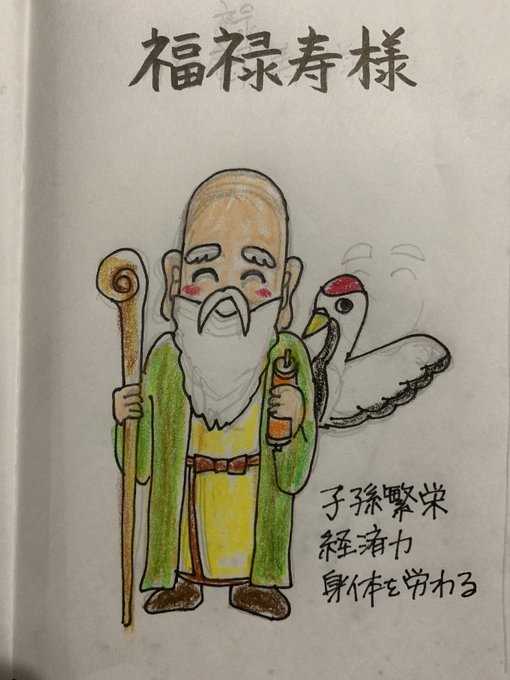 福禄寿様
子孫繁栄
経済力
身体を労わる